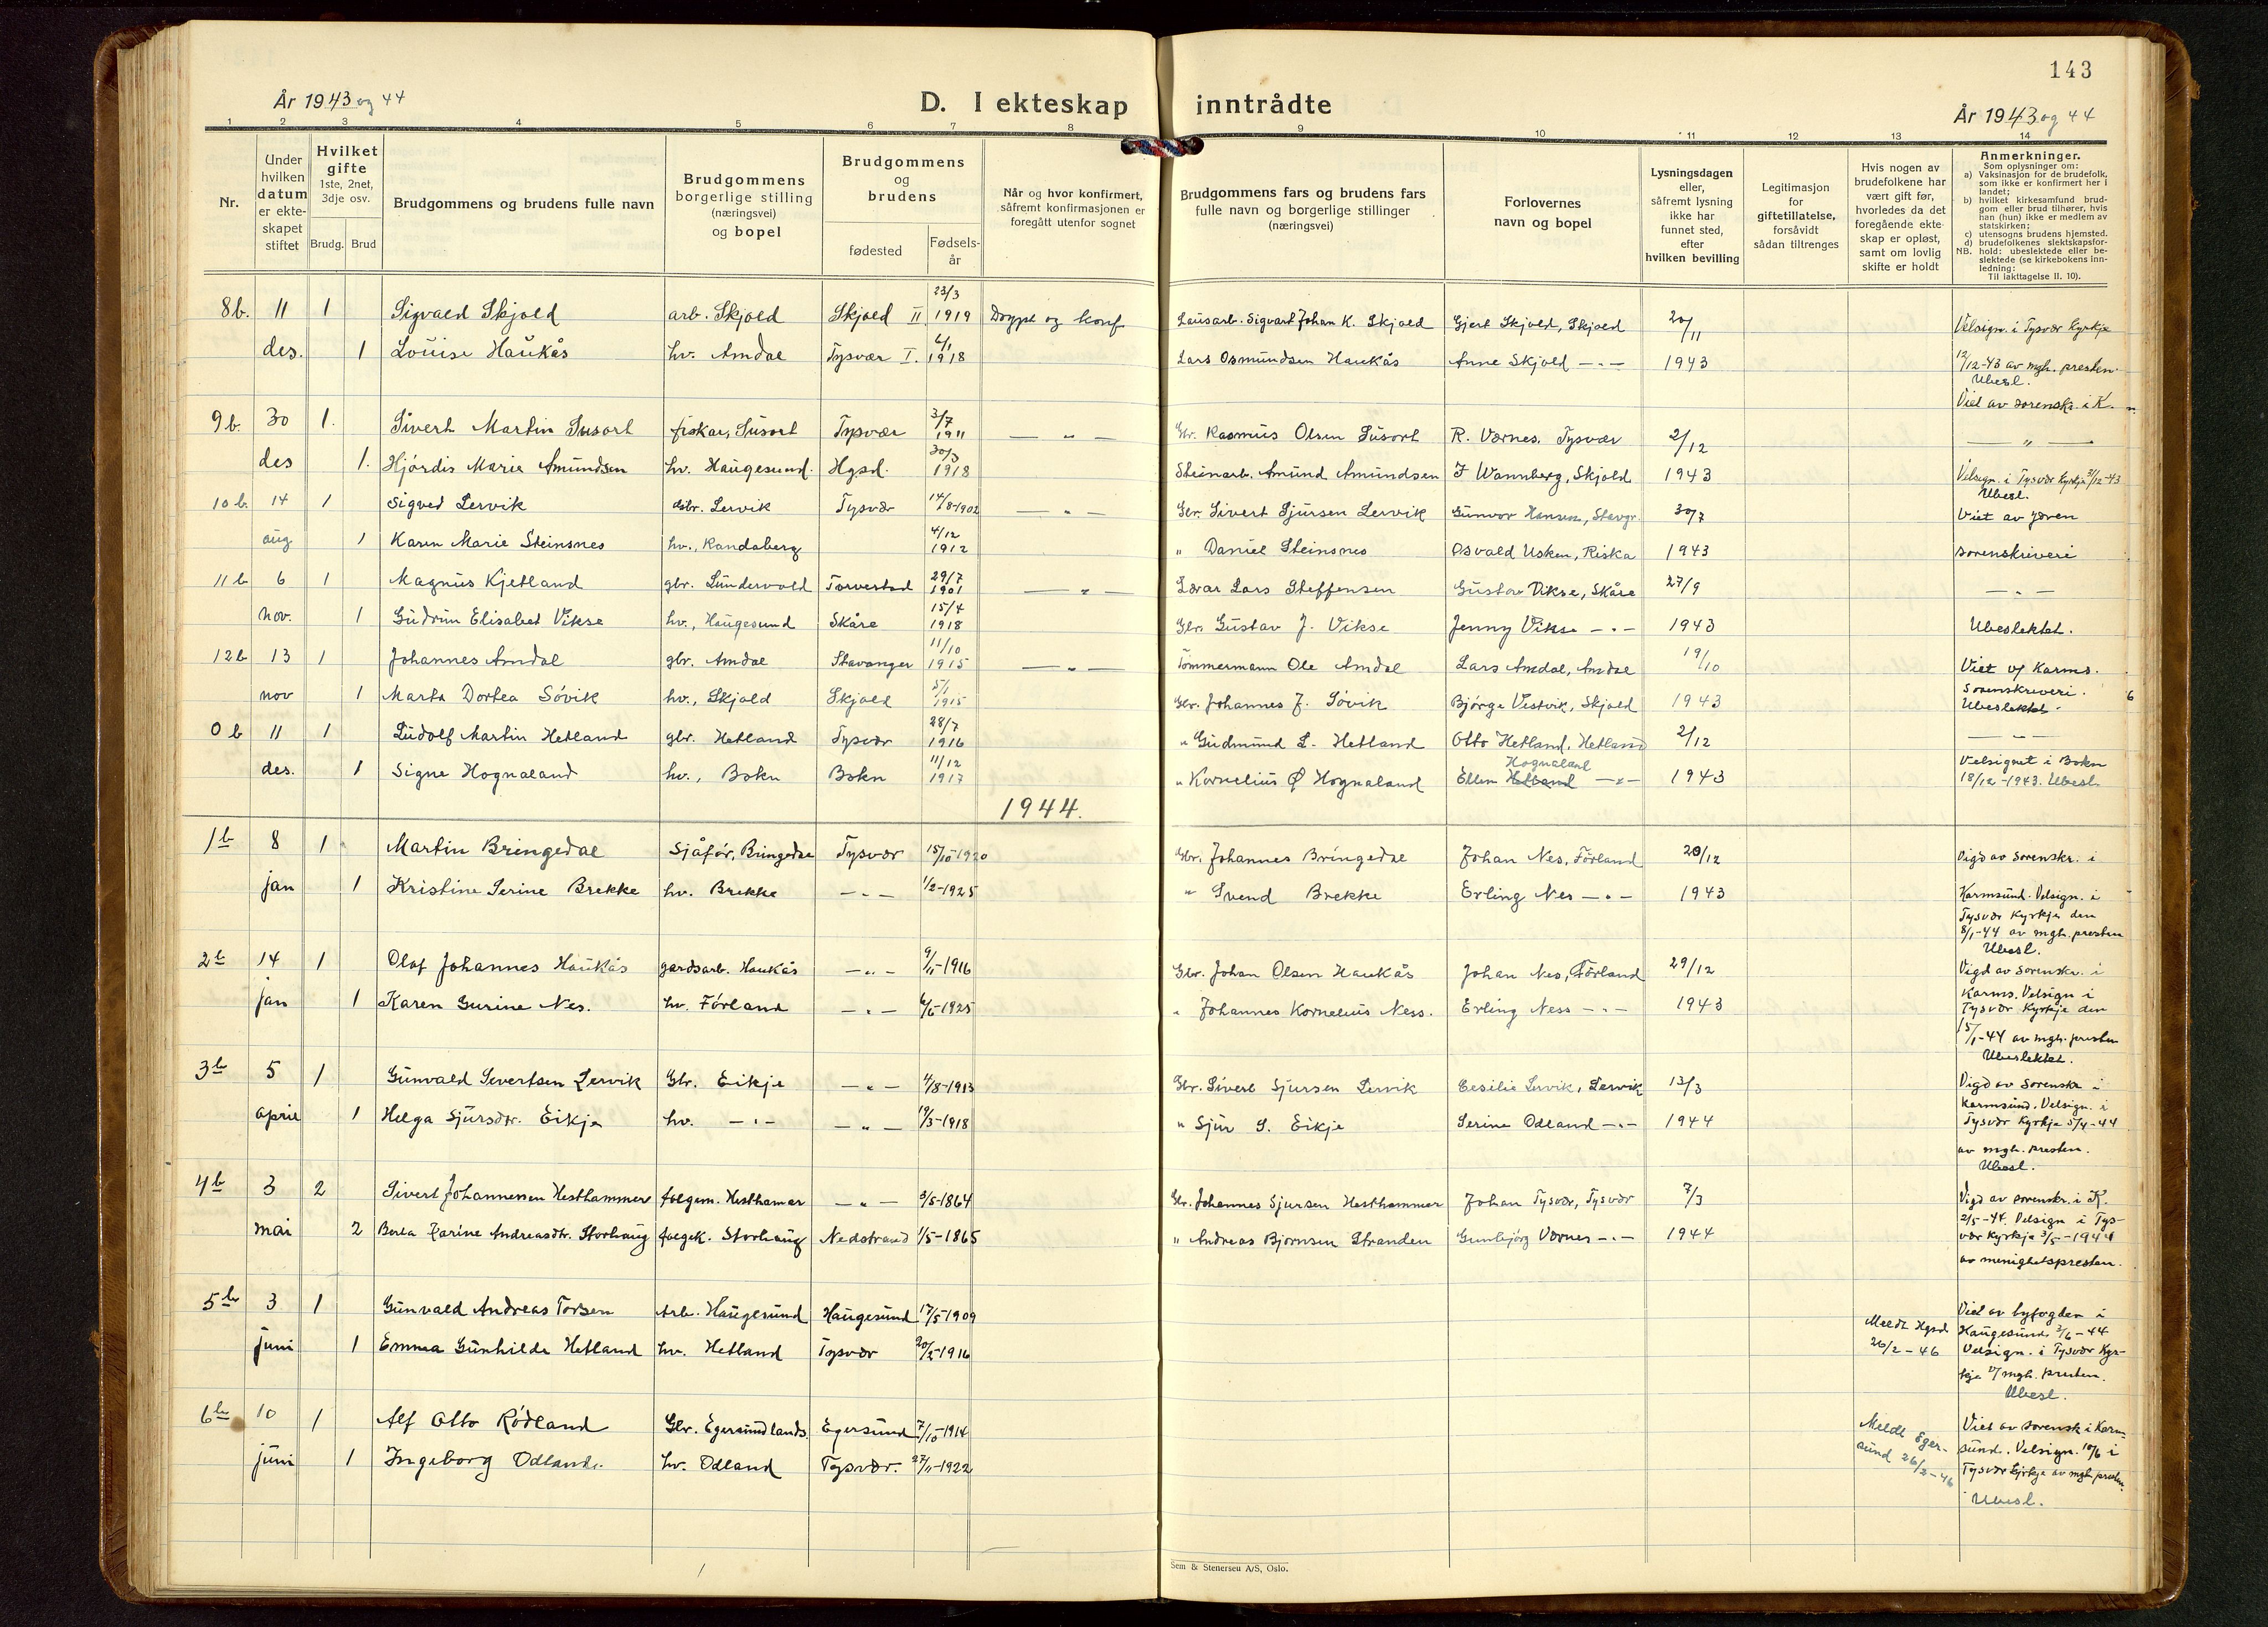 143
År 1943 og 44
D. I ekteskap inntrådte
År 1943 og 44
1 2 3 4 5 6 7 8 9 10 11 12 13 14
Nr.
Under hvilken datum er ekteskapet stiftet
Hvilket gifte 1ste, 2net, 3dje osv.
Brudg. Brud
Brudgommens og brudens fulle navn
Brudgommens borgerlige stilling (næringsvei) og bopel
Brudgommens og brudens
fødested
Fødsels-år
Når og hvor konfirmert, såfremt konfirmasjonen er foregått utenfor sognet
Brudgommens fars og brudens fars fulle navn og borgerlige stillinger (næringsvei)
Forlovernes navn og bopel
Lysningsdagen eller, såfremt lysning ikke har funnet sted, efter hvilken bevilling
Legitimasjon for giftetillatelse, forsåvidt sådan tiltrenges
Hvis nogen av brudefolkene har vært gift før, hvorledes da det foregående ekteskap er opløst, samt om lovlig skifte er holdt
Anmerkninger.
Som oplysninger om:
a) Vaksinasjon for de brudefolk, som ikke er konfirmert her i landet;
b) hvilket kirkesamfund brudgom eller brud tilhører, hvis han (hun) ikke er medlem av statskirken;
c) utensogns brudens hjemsted.
d) brudefolkenes slektskapsforhold: ubeslektede eller beslektede (se kirkebokens innledning:
NB. Til iakttagelse II. 10).
8b. 11 1 Sigvald Skjold arb. Skjold Skjold II 23/3 1919 Døypt og konf Lausarb. Sigvart Johan K. Skjold Gjert Skjold, Skjold 20/11 Velsign. i Tysvær Kyrkje
des. 1 Louise Haukås hv. Amdal Tysvær I. 6/1 1918 Lars Osmundsen Haukås Anne Skjold — " — 1943 12/12-43 av mgh. presten. Ubesl.
Viet av sorenskr. i K.
9b. 30 1. Sivert Martin Susort fiskar, Susort Tysvær 3/7 1911 — " — Gbr. Rasmus Olsen Susort R. Værnes, Tysvær 2/12 — " —
des 1. Hjördis Marie Amundsen hv. Haugesund. Hgsd. 30/3 1918 Steinarb. Amund Amundsen J Wannberg, Skjold 1943 Velsign. i Tysvær Kyrkje 31/12-43 Ubesl.
10 b. 14 1 Sigved Lervik gbr. Lervik Tysvær 14/8-1902 — " — Gbr. Sivert Sjursen Lervik Gunvor Hansen, Stavgr. 30/7 Viet av Jæren
aug 1 Karen Marie Steinsnes hv., Randaberg 4/12 1912 " Daniel Steinsnes Osvald Usken, Riska 1943 sorenskriveri
11 b 6 1 Magnus Kjetland gbr. Lundervold Torvestad 29/7 1901 — " — Lærar Lars Steffensen Gustav Vikse, Skåre 27/9 — " —
nov. 1 Gudrun Elisabet Vikse hv., Haugesund Skåre 15/4 1918 Gbr. Gustav J. Vikse Jenny Vikse — " — 1943 Ubeslektet.
12b 13 1 Johannes Amdal gbr. Amdal Stavanger 11/10 1915 — " — Tömmermann Ole Amdal Lars Amdal, Amdal 19/10 Viet v/ Karms.
nov 1 Marta Dortea Sövik hv., Skjold Skjold 5/1 1915 Gbr. Johannes J. Sövik Bjørge Vestvik, Skjold 1943 Sorenskriveri. Ubeslektet.
0 b 11 1 Ludolf Martin Hetland gbr. Hetland Tysvær 28/7 1916 " Gudmund L. Hetland Otto Hetland, Hetland 2/12 — " —
des. 1 Signe Hognaland hv., Bokn Bokn 11/12 1917 " Kornelius Ø Hognaland Ellen Hetland Hognaland — " — 1943 Velsignet i Bokn 18/12-1943. Ubesl.
1944.
1b 8 1 Martin Bringedal Sjåfør, Bringedal Tysvær 15/10-1920 Gbr. Johannes Bringedal Johan Nes, Førland 20/12 Vigd av Sorenskr. i
jan 1 Kristine Serine Brekke hv. Brekke — " — 1/2-1925 " Svend Brekke Erling Nes — " — 1943 Karmsund. Velsign. i Tysvær Kyrkje den 8/1-44 av mgh. presten Ubesl.
2b 14 1 Olaf Johannes Haukås gardsarb. Haukås — " — 9/11-1916 Gbr. Johan Olsen Haukås Johan Nes, Førland 29/12 Vigd av Sorenskr. i
jan 1 Karen Gurine Nes. hv. Førland — " — 6/6-1925 " Johannes Kornelius Ness. Erling Ness — " — 1943 Karms. Velsign i Tysvær Kyrkje den 15/1-44 av mgh. presten Ubeslektet.
3b 5 1 Gunvald Severtsen Lervik Gbr. Eikje — " — 4/8-1913 Gbr. Sivert Sjursen Lervik Cesilie Lervik, Lervik 13/3 Vigd av Sorenskr i
april 1 Helga Sjursdtr. Eikje hv. — " — — " — 19/3-1918 " Sjur S. Eikje Serine Odland — " — 1944 Karmsund. Velsign. i Tysvær Kyrkje 5/4-44 av mgh. presten. Ubesl.
4b 3 2 Sivert Johannessen Hesthammer folgem. Hesthamar — " — 9/5-1864 Gbr. Johannes Sjursen Hesthammer Johan Tysvær, Tysvær 7/3 Vigd av sorenskr. i K.
mai 2 Berta Karine Andreasdtr. Storhaug folgek. Storhaug Nedstrand 1/5-1865 " Andreas Bjørnsen Stranden Gunbjørg Værnes — " — 1944 2/5-44. Velsign i Tysvær Kyrkje 3/5-1944 av menighetspresten.
5b 3 1 Gunvald Andreas Torsen Arb. Haugesund Haugesund 17/5-1909 Meldt Hgsd. 26/2-46 Viet av byfogden i
juni 1 Emma Gunhilda Hetland hv. Hetland Tysvær 20/2-1916 Haugesund 3/6-44 Velsign. i Tysvær Kyrkje v/ mgh. presten. Ubesl.
6b 10 1 Alf Otto Rødland Gbr. Egersund lands. Egersund 7/10-1914 Meldt Egersund 26/2-46 Viet av sorensk i Karmsund. Velsign. 10/6 i
juni 1 Ingeborg Odland. hv. Odland Tysvær. 27/11-1922 Tysvær Kyrkje av mgh presten. Ubesl.
Sem & Stenersen A/S, Oslo.